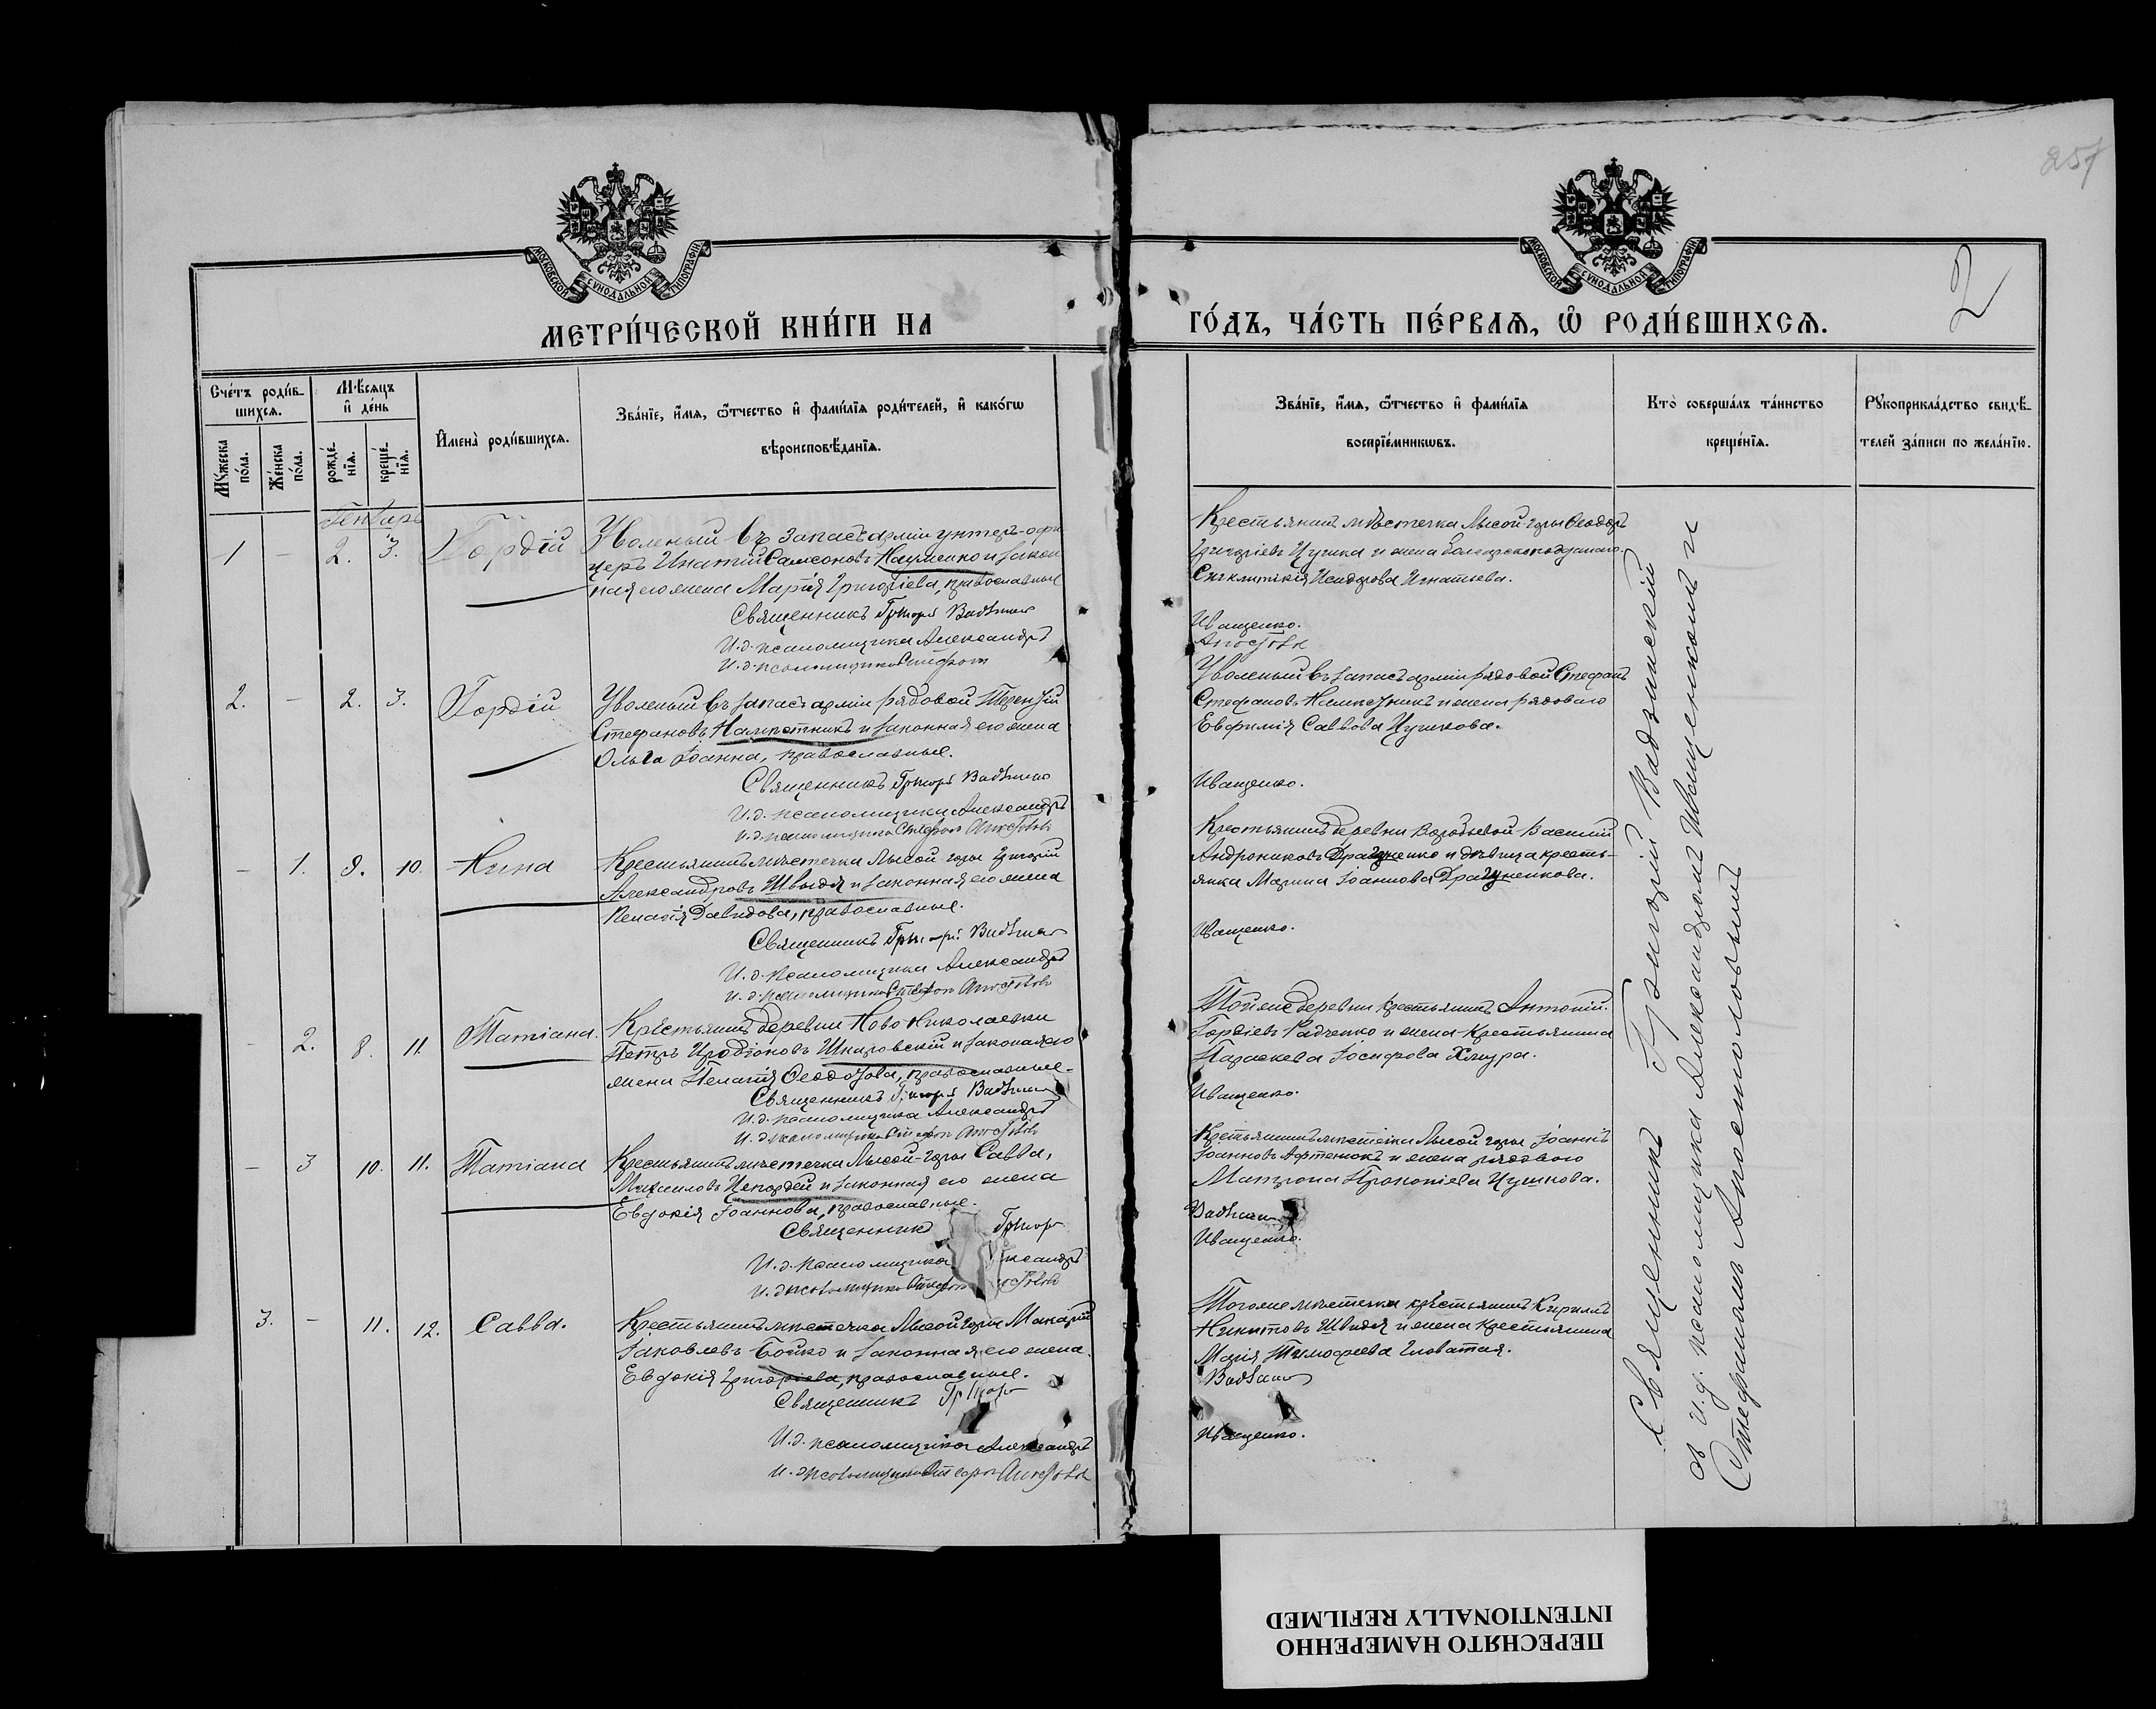 257
2
МОСКОВСКОЙ СѴНОДАЛЬНОЙ ТИПОГРАФІИ
МОСКОВСКОЙ СѴНОДАЛЬНОЙ ТИПОГРАФІИ
МЕТРИ́ЧЕСКОЙ КНИ́ГИ НА
ГО́ДЪ, ЧА́СТЬ ПЕ́РВАѦ, Ѽ РОДИ́ВШИХСѦ.
Сче́тъ роди́в-
шихсѧ.
Мꙋ́жеска по́ла.
Же́нска по́ла.
Мѣ́сяцъ
и҆ де́нь
рожде́-
нїѧ.
креще́-
нїѧ.
И҆мена̀ роди́вшихсѧ.
Зва́нїе, и҆́мѧ, ѻ҆́тчество и҆ фами́лїѧ роди́телей, и҆ како́гѡ
вѣроисповѣ́данїѧ.
Зва́нїе, и҆́мѧ, ѻ҆́тчество и҆ фами́лїѧ
воспрїе́мникѡвъ.
Кто̀ соверша́лъ та́инство
креще́нїѧ.
Рꙋкоприкла́дство свидѣ́-
телей за́писи по жела́нїю.
Генварь
1 – 2. 3. Гордій
Уволеный въ запасъ арміи унтеръ-офи
церъ Игнатій Самсоновъ Науменко и закон
ная его жена Марія Григоріева, православные
Священникъ Григорій
И.д. псаломщика Александръ
И.д. псаломщика Стефан
Крестьянинъ мѣстечка Лысой-горы Ѳеодоръ
Григоріевъ Цушка и жена
Синклитикія Исидорова Игнатьева.
Иващенко.
Апостолов
2. – 2. 3. Гордій
Уволеный въ запасъ арміи рядовой Терентій
Стефановъ Намѣстникъ и законная его жена
Ольга Іоанна, православные.
Священникъ Григорій
И.д. псаломщика Александръ
И.д. псаломщика Стефан Апостолов
Уволеный въ запасъ арміи рядовой Стефанъ
Стефановъ Намѣстникъ и жена рядового
Евфимія Саввова Цушкова.
Иващенко.
– 1. 8. 10. Нина
Крестьянинъ мѣстечка Лысой-горы Григорій
Александровъ Швыдя и законная его жена
Пелагія Давидова, православные.
Священникъ Григорій
И.д. псаломщика Александръ
И.д. псаломщика Стефан Апостолов
Крестьянинъ деревни Воробьевой Василій
Андрониковъ Драгуненко и дѣвица кресть-
янка Марина Іоаннова Драгуненкова.
Иващенко.
– 2. 8. 11. Татіана.
Крестьянинъ деревни Ново Николаевки
Петръ Иродіоновъ Шкаровскій и законная его
жена Пелагія Ѳеодосова, православные.
Священникъ Григорій
И.д. псаломщика Александръ
И.д. псаломщика Стефан Апостолов
Той же деревни крестьянинъ Антоній.
Гордіевъ Радченко и жена крестьянина
Параскева Іосифова Хмура.
Иващенко.
– 3 10. 11. Татіана
Крестьянинъ мѣстечка Лысой-горы Савва,
Михаиловъ Непордей и законная его жена
Евдокія Іоаннова, православные.
Священник Григор
И.д. псаломщика Александръ
И.д. псаломщика Стефан
Крестьянинъ мѣстечка Лысой горы Іоаннъ
Іоанновъ Афтенюкъ и жена рядового
Матрона Прокопіева Цушкова.
Иващенко.
3. – 11. 12. Савва.
Крестьянинъ мѣстечка Лысой горы Макарій
Іаковлевъ Бойко и законная его жена.
Евдокія Григоріева, православные.
Священникъ Григор
И.д. псаломщика Александръ
И.д. псаломщика Стефан Апостолов
Того же мѣстечка крестьянинъ Кирилъ
Никитовъ Швыдя и жена крестьянина
Марія Тимофеева Головатая.
Иващенко.
Священникъ Григорій Вадзинскій
съ и.д. псаломщика Александромъ Иващенкомъ и
Стефаномъ Апостоловымъ
ПЕРЕСНЯТО НАМЕРЕННО
INTENTIONALLY REFILMED